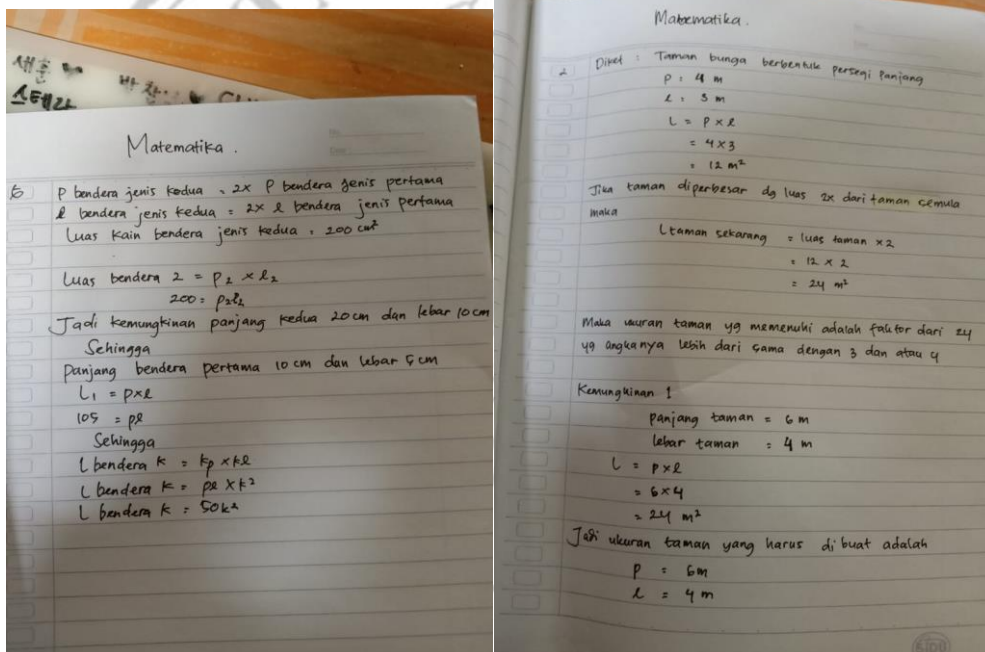 새홀
스테라
Matematika.
6 P bendera jenis kedua = 2x P bendera jenis pertama
l bendera jenis kedua = 2x l bendera jenis pertama
Luas kain bendera jenis kedua = 200 cm²
Luas bendera 2 = P₂ x l₂
200 = P₂l₂
Jadi kemungkinan panjang kedua 20 cm dan lebar 10 cm
Sehingga
Panjang bendera pertama 10 cm dan lebar 5 cm
L₁ = pxl
105 = pl
Sehingga
L bendera k = kp x kl
L bendera k = pl x k²
L bendera k = 50k²
Matematika.
2 Diket : Taman bunga berbentuk persegi panjang
P : 4 m
l : 3 m
L = P x l
= 4 x 3
= 12 m²
Jika taman diperbesar dg luas 2x dari taman semula
maka
L taman sekarang = luas taman x 2
= 12 x 2
= 24 m²
Maka ukuran taman yg memenuhi adalah faktor dari 24
yg angkanya lebih dari sama dengan 3 dan atau 4
Kemungkinan 1
panjang taman = 6 m
lebar taman = 4 m
L = P x l
= 6 x 4
= 24 m²
Jadi ukuran taman yang harus di buat adalah
P = 6m
l = 4 m
KIDO